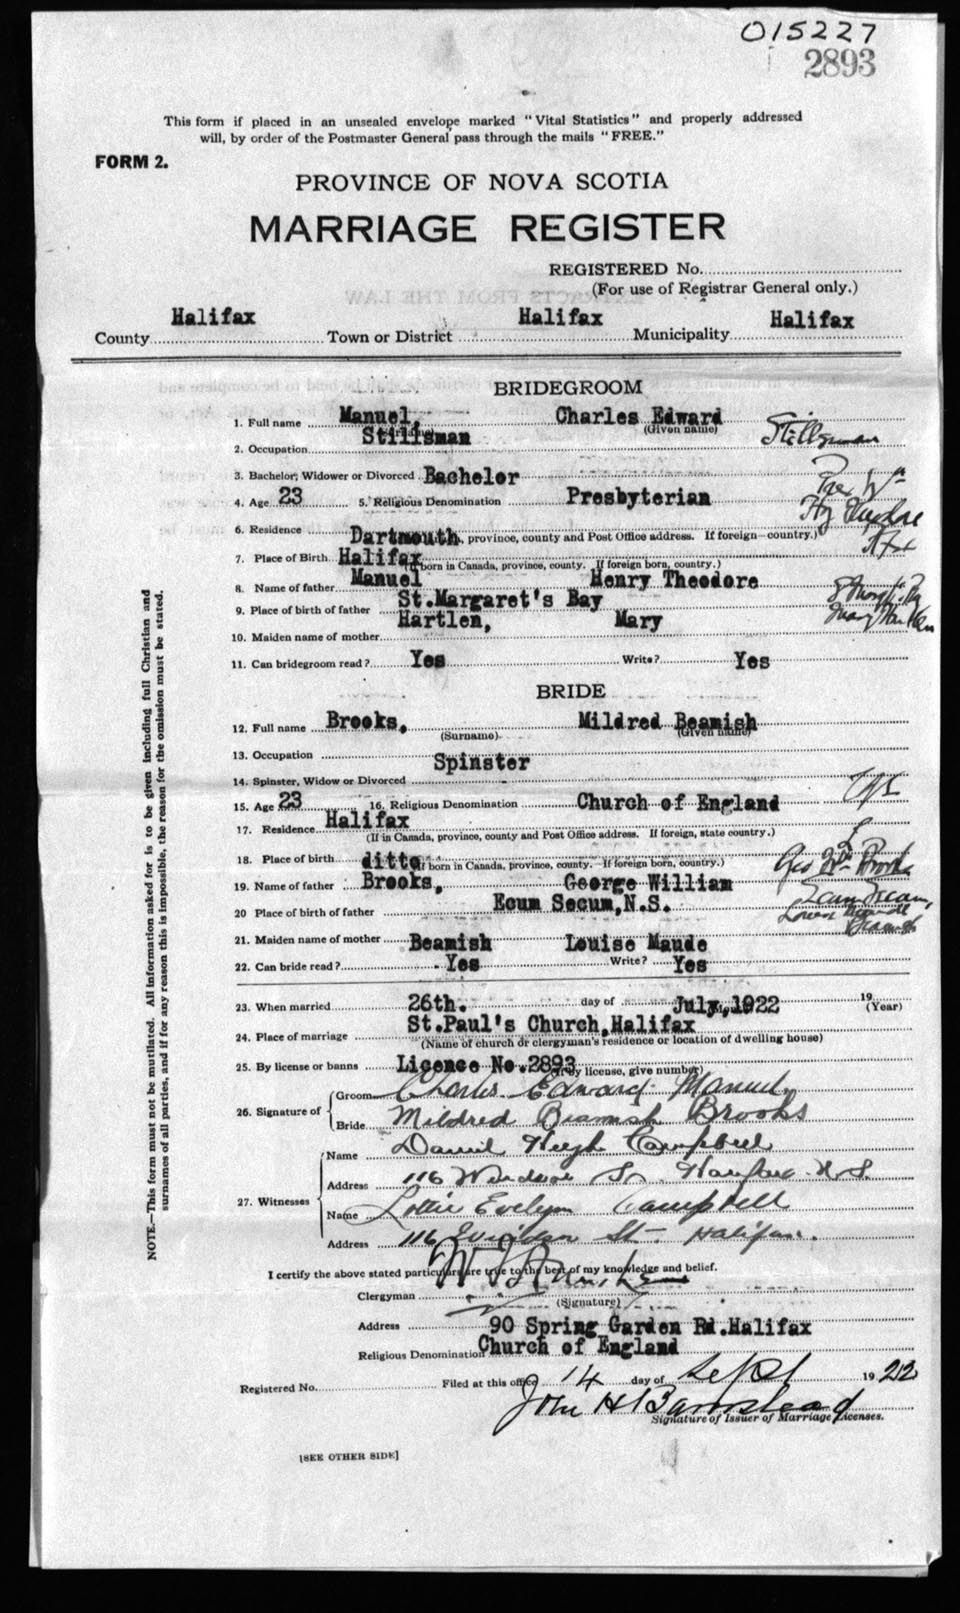 015227
2893
This form if placed in an unsealed envelope marked "Vital Statistics" and properly addressed
will, by order of the Postmaster General pass through the mails "FREE."
FORM 2.
PROVINCE OF NOVA SCOTIA
MARRIAGE REGISTER
REGISTERED No.
(For use of Registrar General only.)
County Halifax Town or District Halifax Municipality Halifax
BRIDEGROOM
1. Full name Manuel, Charles Edward
(Surname) (Given name)
2. Occupation Stillsman Stillsman
3. Bachelor, Widower or Divorced Bachelor
4. Age 23 5. Religious Denomination Presbyterian
6. Residence Dartmouth
province, county and Post Office address. If foreign—country.)
7. Place of Birth Halifax
(If born in Canada, province, county. If foreign born, country.)
8. Name of father Manuel Henry Theodore
9. Place of birth of father St.Margaret's Bay
10. Maiden name of mother Hartlen, Mary
11. Can bridegroom read? Yes Write? Yes
BRIDE
12. Full name Brooks, Mildred Beamish
(Surname) (Given name)
13. Occupation
14. Spinster, Widow or Divorced Spinster
15. Age 23 16. Religious Denomination Church of England
17. Residence Halifax
(If in Canada, province, county and Post Office address. If foreign, state country.)
18. Place of birth ditto
(If born in Canada, province, county. If foreign born, country.)
19. Name of father Brooks, George William
20 Place of birth of father Ecum Secum,N.S.
21. Maiden name of mother Beamish Louise Maude
22. Can bride read? Yes Write? Yes
23. When married 26th. day of July,1922 19 (Year)
24. Place of marriage St.Paul's Church,Halifax
(Name of church or clergyman's residence or location of dwelling house)
25. By license or banns Licence No.2893
(If by license, give number)
26. Signature of
Groom Charles Edward Manuel
Bride Mildred Beamish Brooks
27. Witnesses
Name Daniel Hugh Campbell
Address 116 Windsor St. Halifax N.S.
Name Lottie Evelyn Campbell
Address 116 Windsor St. Halifax.
I certify the above stated particulars are true to the best of my knowledge and belief.
Clergyman
(Signature)
Address 90 Spring Garden Rd.Halifax
Religious Denomination Church of England
Registered No. Filed at this office 14 day of Sept 1922
John H Barnstead
Signature of Issuer of Marriage Licenses.
[SEE OTHER SIDE]
NOTE.—This form must not be mutilated. All information asked for is to be given including full Christian and
surnames of all parties, and if for any reason this is impossible, the reason for the omission must be stated.